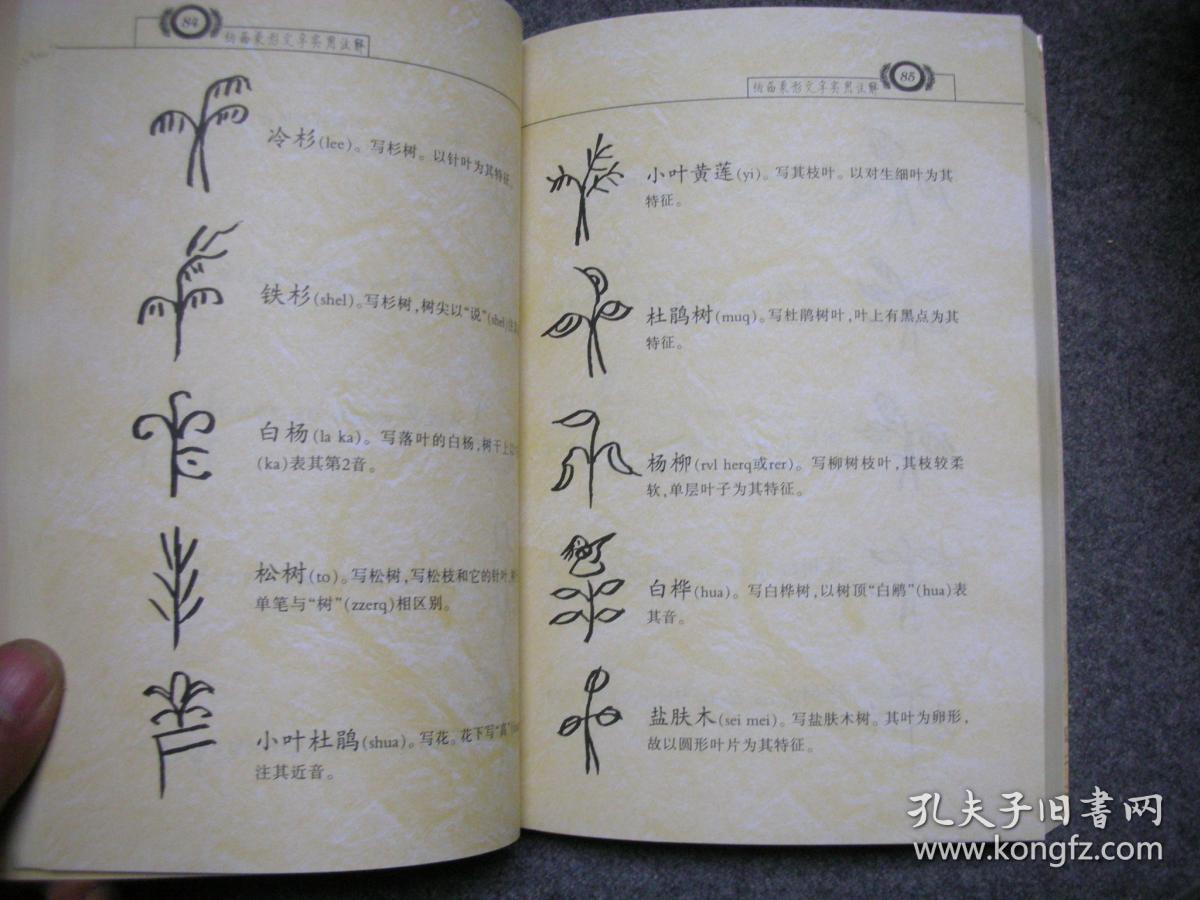 84
纳西象形文字实用注解
冷杉(lee)。写杉树。以针叶为其特征。
铁杉(shel)。写杉树,树尖以“说”(shel)注
白杨(la ka)。写落叶的白杨,树干上以
(ka)表其第2音。
松树(to)。写松树,写松枝和它的针叶,
单笔与“树”(zzerq)相区别。
小叶杜鹃(shua)。写花。花下写“高”
注其近音。
纳西象形文字实用注解
85
小叶黄莲(yi)。写其枝叶。以对生细叶为其
特征。
杜鹃树(muq)。写杜鹃树叶,叶上有黑点为其
特征。
杨柳(rvl herq或rer)。写柳树枝叶,其枝较柔
软,单层叶子为其特征。
白桦(hua)。写白桦树,以树顶“白鹇”(hua)表
其音。
盐肤木(sei mei)。写盐肤木树。其叶为卵形,
故以圆形叶片为其特征。
孔夫子旧书网
www.kongfz.com